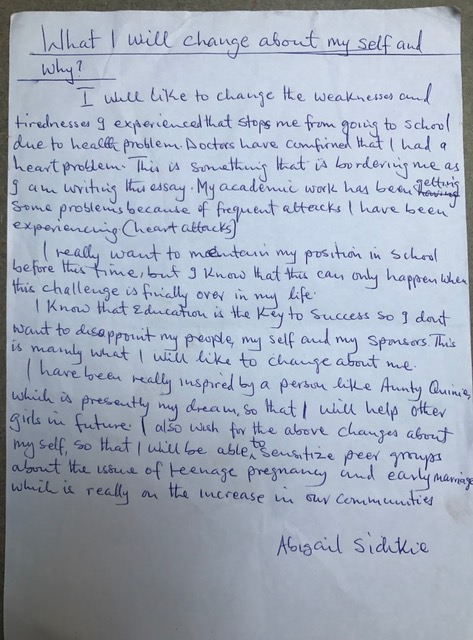 What I will change about my self and
Why?
I will like to change the weaknesses and
tirednesses I experienced that stops me from going to School
due to health problem. Doctors have confined that I had a
heart problem. This is something that is bordering me as
I am writing this essay. My academic work has been getting
Some problems because of frequent attacks I have been
experiencing (heart attacks)
I really want to maentain my position in School
before this time, but I know that this can only happen when
this challenge is finially over in my life.
I Know that Education is the Key to Success so I dont
want to disappoint my people, my self and my Sponsors. This
is mainly what I will like to change about me.
I have been really inspired by a person like Aunty Quinie,
which is presently my dream, so that I will help other
girls in future. I also wish for the above changes about
my self, so that I will be able to Sensitize peer groups
about the issue of teenage pregnancy and early marriage
which is really on the increase in our Communities
Abigail Sidikie